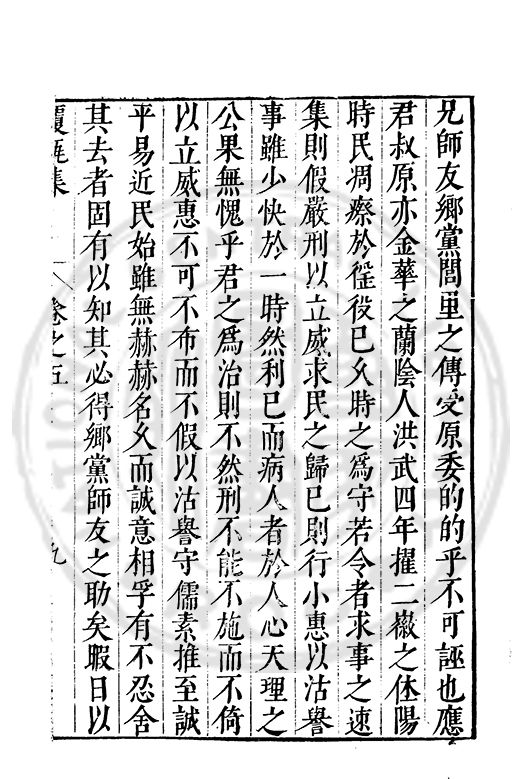 兄師友鄉黨閭里之傳受原委的的乎不可誣也應
君叔原亦金華之蘭陰人洪武四年擢二徽之休陽
時民凋瘵於徭役已久時之爲守若令者求事之速
集則假嚴刑以立威求民之歸已則行小惠以沽譽
事雖少快於一時然利已而病人者於人心天理之
公果無愧乎君之爲治則不然刑不能不施而不倚
以立威惠不可不布而不假以沽譽守儒素推至誠
平易近民始雖無赫赫名久而誠意相孚有不忍舍
其去者固有以知其必得鄉黨師友之助矣暇日以
覆瓿集 卷之五 九